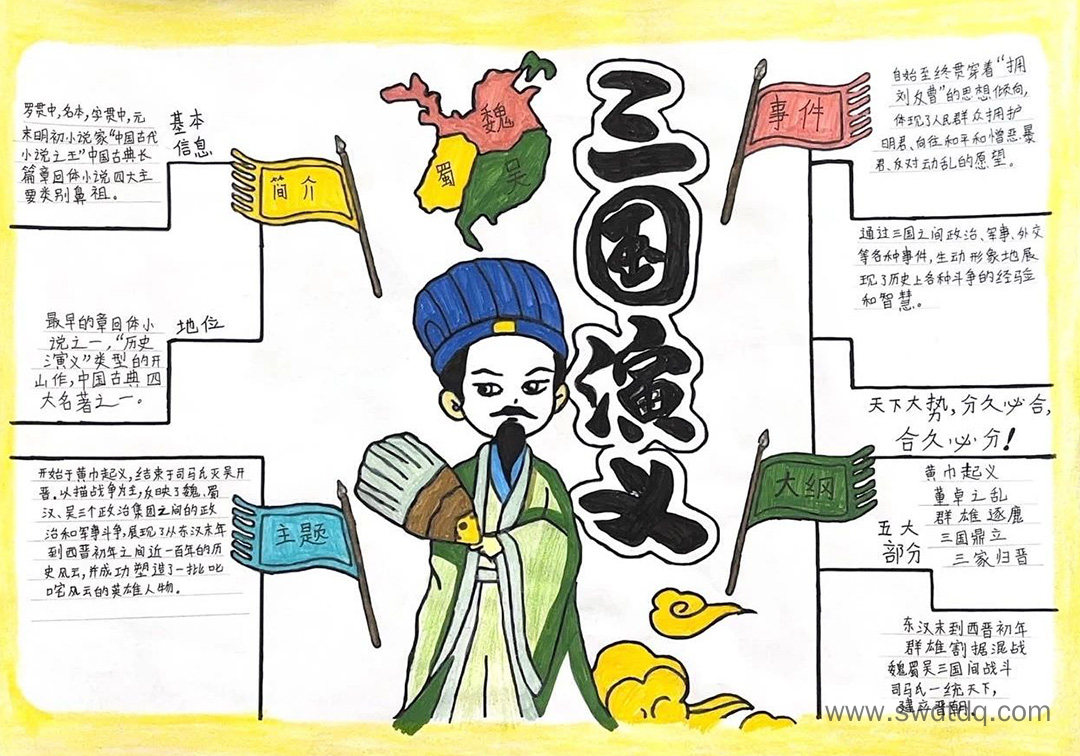 三国演义
魏
蜀
吴
简介
基本
信息
罗贯中,名本,字贯中,元
末明初小说家“中国古代
小说之王”中国古典长
篇章回体小说四大主
要类别鼻祖。
地位
最早的章回体小
说之一,“历史
演义”类型的开
山作,中国古典四
大名著之一。
主题
开始于黄巾起义,结束于司马氏灭吴开
晋。以描战争为主,反映了魏、蜀
汉、吴三个政治集团之间的政
治和军事斗争,展现了从东汉末年
到西晋初年之间近一百年的历
史风云,并成功塑造了一批叱
咤风云的英雄人物。
事件
自始至终贯穿着“拥
刘反曹”的思想倾向,
体现了人民群众拥护
明君、向往和平和憎恶暴
君、反对动乱的愿望。
通过三国之间政治、军事、外交
等各种事件,生动形象地展
现了历史上各种斗争的经验
和智慧。
天下大势,分久必合,
合久必分!
大纲
五大
部分
黄巾起义
董卓之乱
群雄逐鹿
三国鼎立
三家归晋
东汉末到西晋初年
群雄割据混战
魏蜀吴三国间战斗
司马氏一统天下,
建立晋朝。
www.swdtdq.com